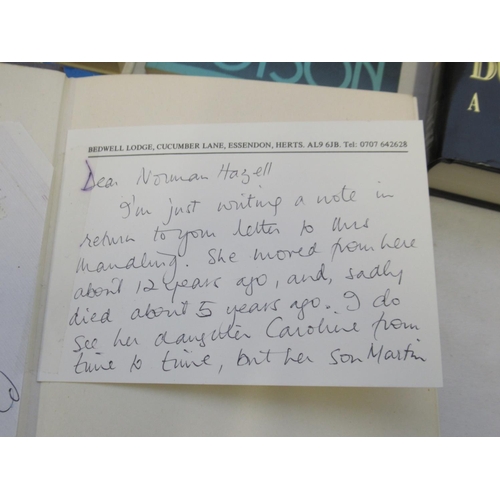 DYSON
D
A
BEDWELL LODGE, CUCUMBER LANE, ESSENDON, HERTS. AL9 6JB. Tel: 0707 642628
Dear Norman Hazell
I'm just writing a note in
return to your letter to Mrs
Mandling. She moved from here
about 12 years ago, and, sadly
died about 5 years ago. I do
see her daughter Caroline from
time to time, but her son Martin